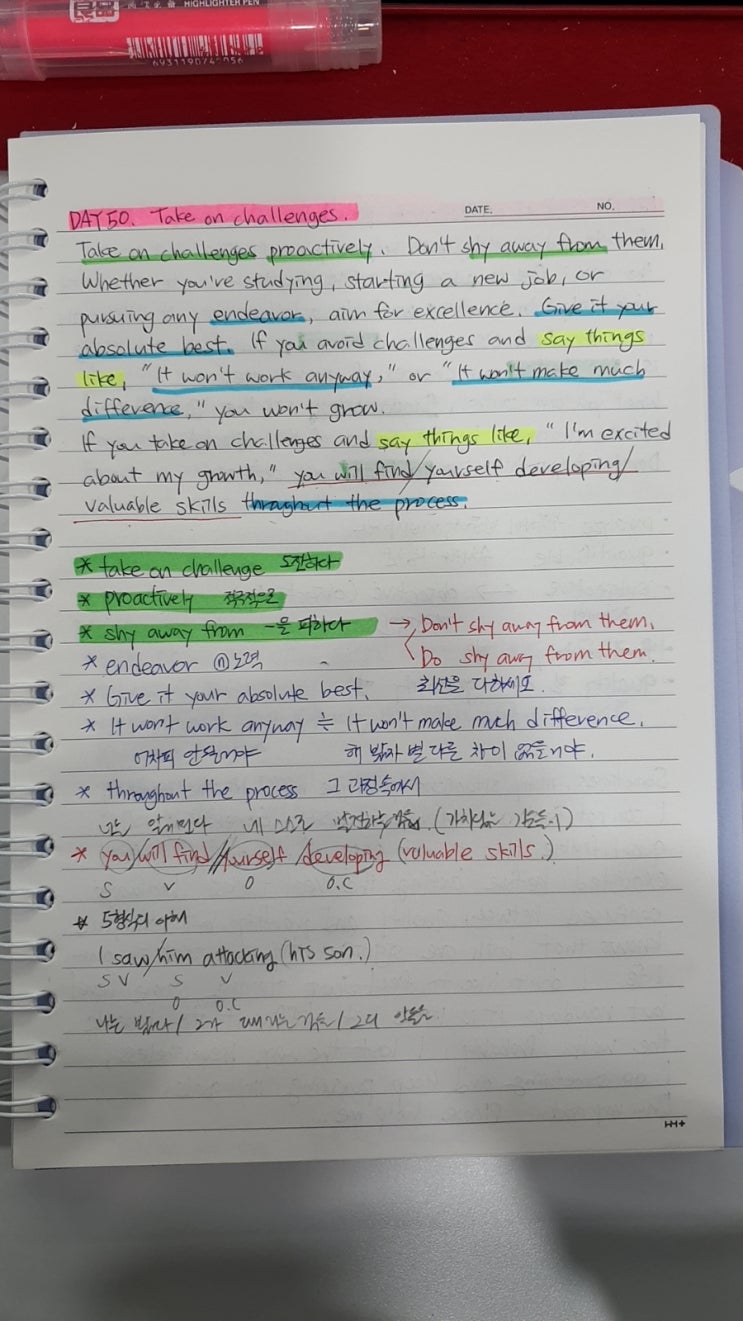 HIGHLIGHTER PEN
6931190740056
DATE.
NO.
DAY 50. Take on challenges.
Take on challenges proactively. Don't shy away from them.
Whether you've studying, starting a new job, or
pursuing any endeavor, aim for excellence. Give it your
absolute best. If you avoid challenges and say things
like, "It won't work anyway," or "It won't make much
difference," you won't grow.
If you take on challenges and say things like, "I'm excited
about my growth," you will find/yourself developing/
valuable skills throughout the process.
* take on challenge 도전하다
* proactively 적극적으로
* shy away from ~을 피하다 → Don't shy away from them.
Do shy away from them.
* endeavor ⓝ 노력
* Give it your absolute best. 최선을 다하세요.
* It won't work anyway ≒ It won't make much difference.
어차피 안될거야 해 봤자 별 다를 차이 없을거야.
* throughout the process 그 과정속에서
나는 알게된다 네 스스로 발전하는 것을. (가치있는 기술들이)
* you will find//yourself developing (valuable skills.)
S V O O.C
* 5형식의 이해
I saw/him attacking (his son.)
S V S V
O O.C
나는 봤다 / 그가 때리는 것을 / 그의 아들을
HM+